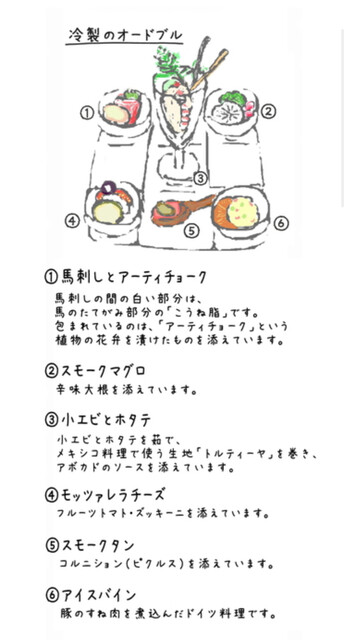 冷製のオードブル
①
②
③
④
⑤
⑥
①馬刺しとアーティチョーク
馬刺しの間の白い部分は、
馬のたてがみ部分の「こうね脂」です。
包まれているのは、「アーティチョーク」という
植物の花弁を漬けたものを添えています。
②スモークマグロ
辛味大根を添えています。
③小エビとホタテ
小エビとホタテを茹で、
メキシコ料理で使う生地「トルティーヤ」を巻き、
アボカドのソースを添えています。
④モッツァレラチーズ
フルーツトマト・ズッキーニを添えています。
⑤スモークタン
コルニション(ピクルス)を添えています。
⑥アイスバイン
豚のすね肉を煮込んだドイツ料理です。